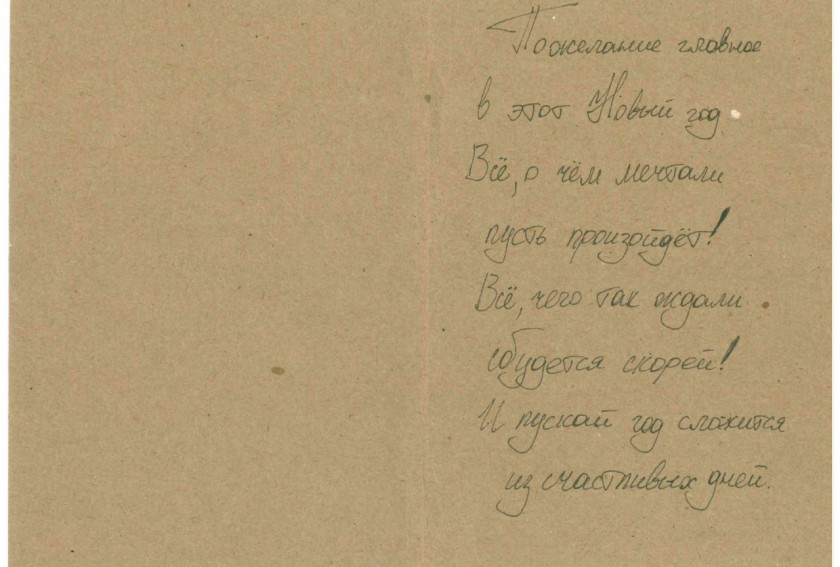 Пожелание главное
в этот Новый год
Всё, о чём мечтали
пусть произойдёт!
Всё, чего так ждали
сбудется скорей!
И пускай год сложится
из счастливых дней.